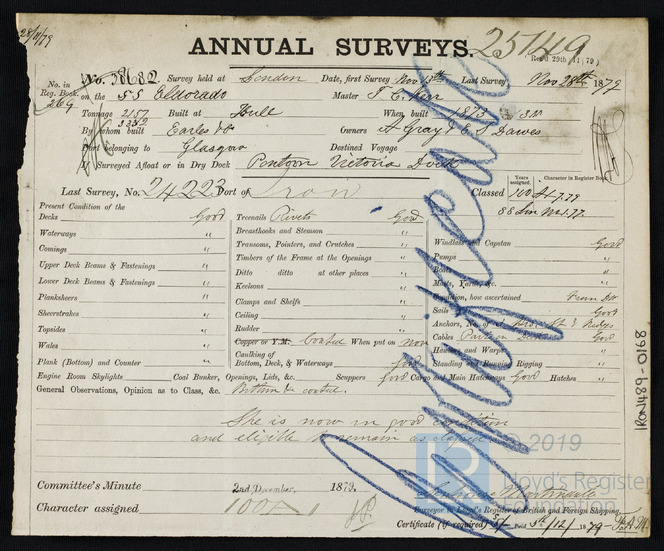 28/11/79
ANNUAL SURVEYS.
25149
Rec'd 29th 11/79
No. in Reg. Book.
269
No. 58682 Survey held at London Date, first Survey Nov 18th Last Survey Nov 28th 1879
on the SS Eldorado Master T. C. Kerr
Tonnage 2157 Built at Hull When built 1873
By whom built Earles & Co Owners A Gray & E S Dawes
Port belonging to Glasgow Destined Voyage
If Surveyed Afloat or in Dry Dock Pontoon Victoria Dock
Years assigned. Character in Register Book
Last Survey, No. 24223 Port of Iron Classed 100 A1
Present Condition of the
Decks Good
Waterways "
Comings "
Upper Deck Beams & Fastenings "
Lower Deck Beams & Fastenings "
Planksheers "
Sheerstrakes "
Topsides "
Wales "
Plank (Bottom) and Counter "
Treenails Rivets Good
Breasthooks and Stemson "
Transoms, Pointers, and Crutches "
Timbers of the Frame at the Openings "
Ditto ditto at other places "
Keelsons "
Clamps and Shelfs "
Ceiling "
Rudder "
Copper or Y.M. Coated When put on now
Caulking of
Bottom, Deck, & Waterways Good
Windlass and Capstan Good
Pumps "
Boats "
Masts, Yards, &c. "
Condition, how ascertained From Dk
Sails Good
Anchors, No. of
Cables Good
Hawsers and Warps "
Standing and Running Rigging "
Engine Room Skylights " Coal Bunker, Openings, Lids, &c. " Scuppers Good Cargo and Main Hatchways Good Hatches "
General Observations, Opinion as to Class, &c. Bottom coated.
She is now in good condition
and eligible to remain as classed
Certificate
Committee's Minute 2nd December, 1879.
Character assigned 100A1
Surveyor to Lloyd's Register of British and Foreign Shipping.
Certificate (if required) 5/- Paid 5th/12/1879
IRON489-0168
© 2019
Lloyd's Register
Foundation